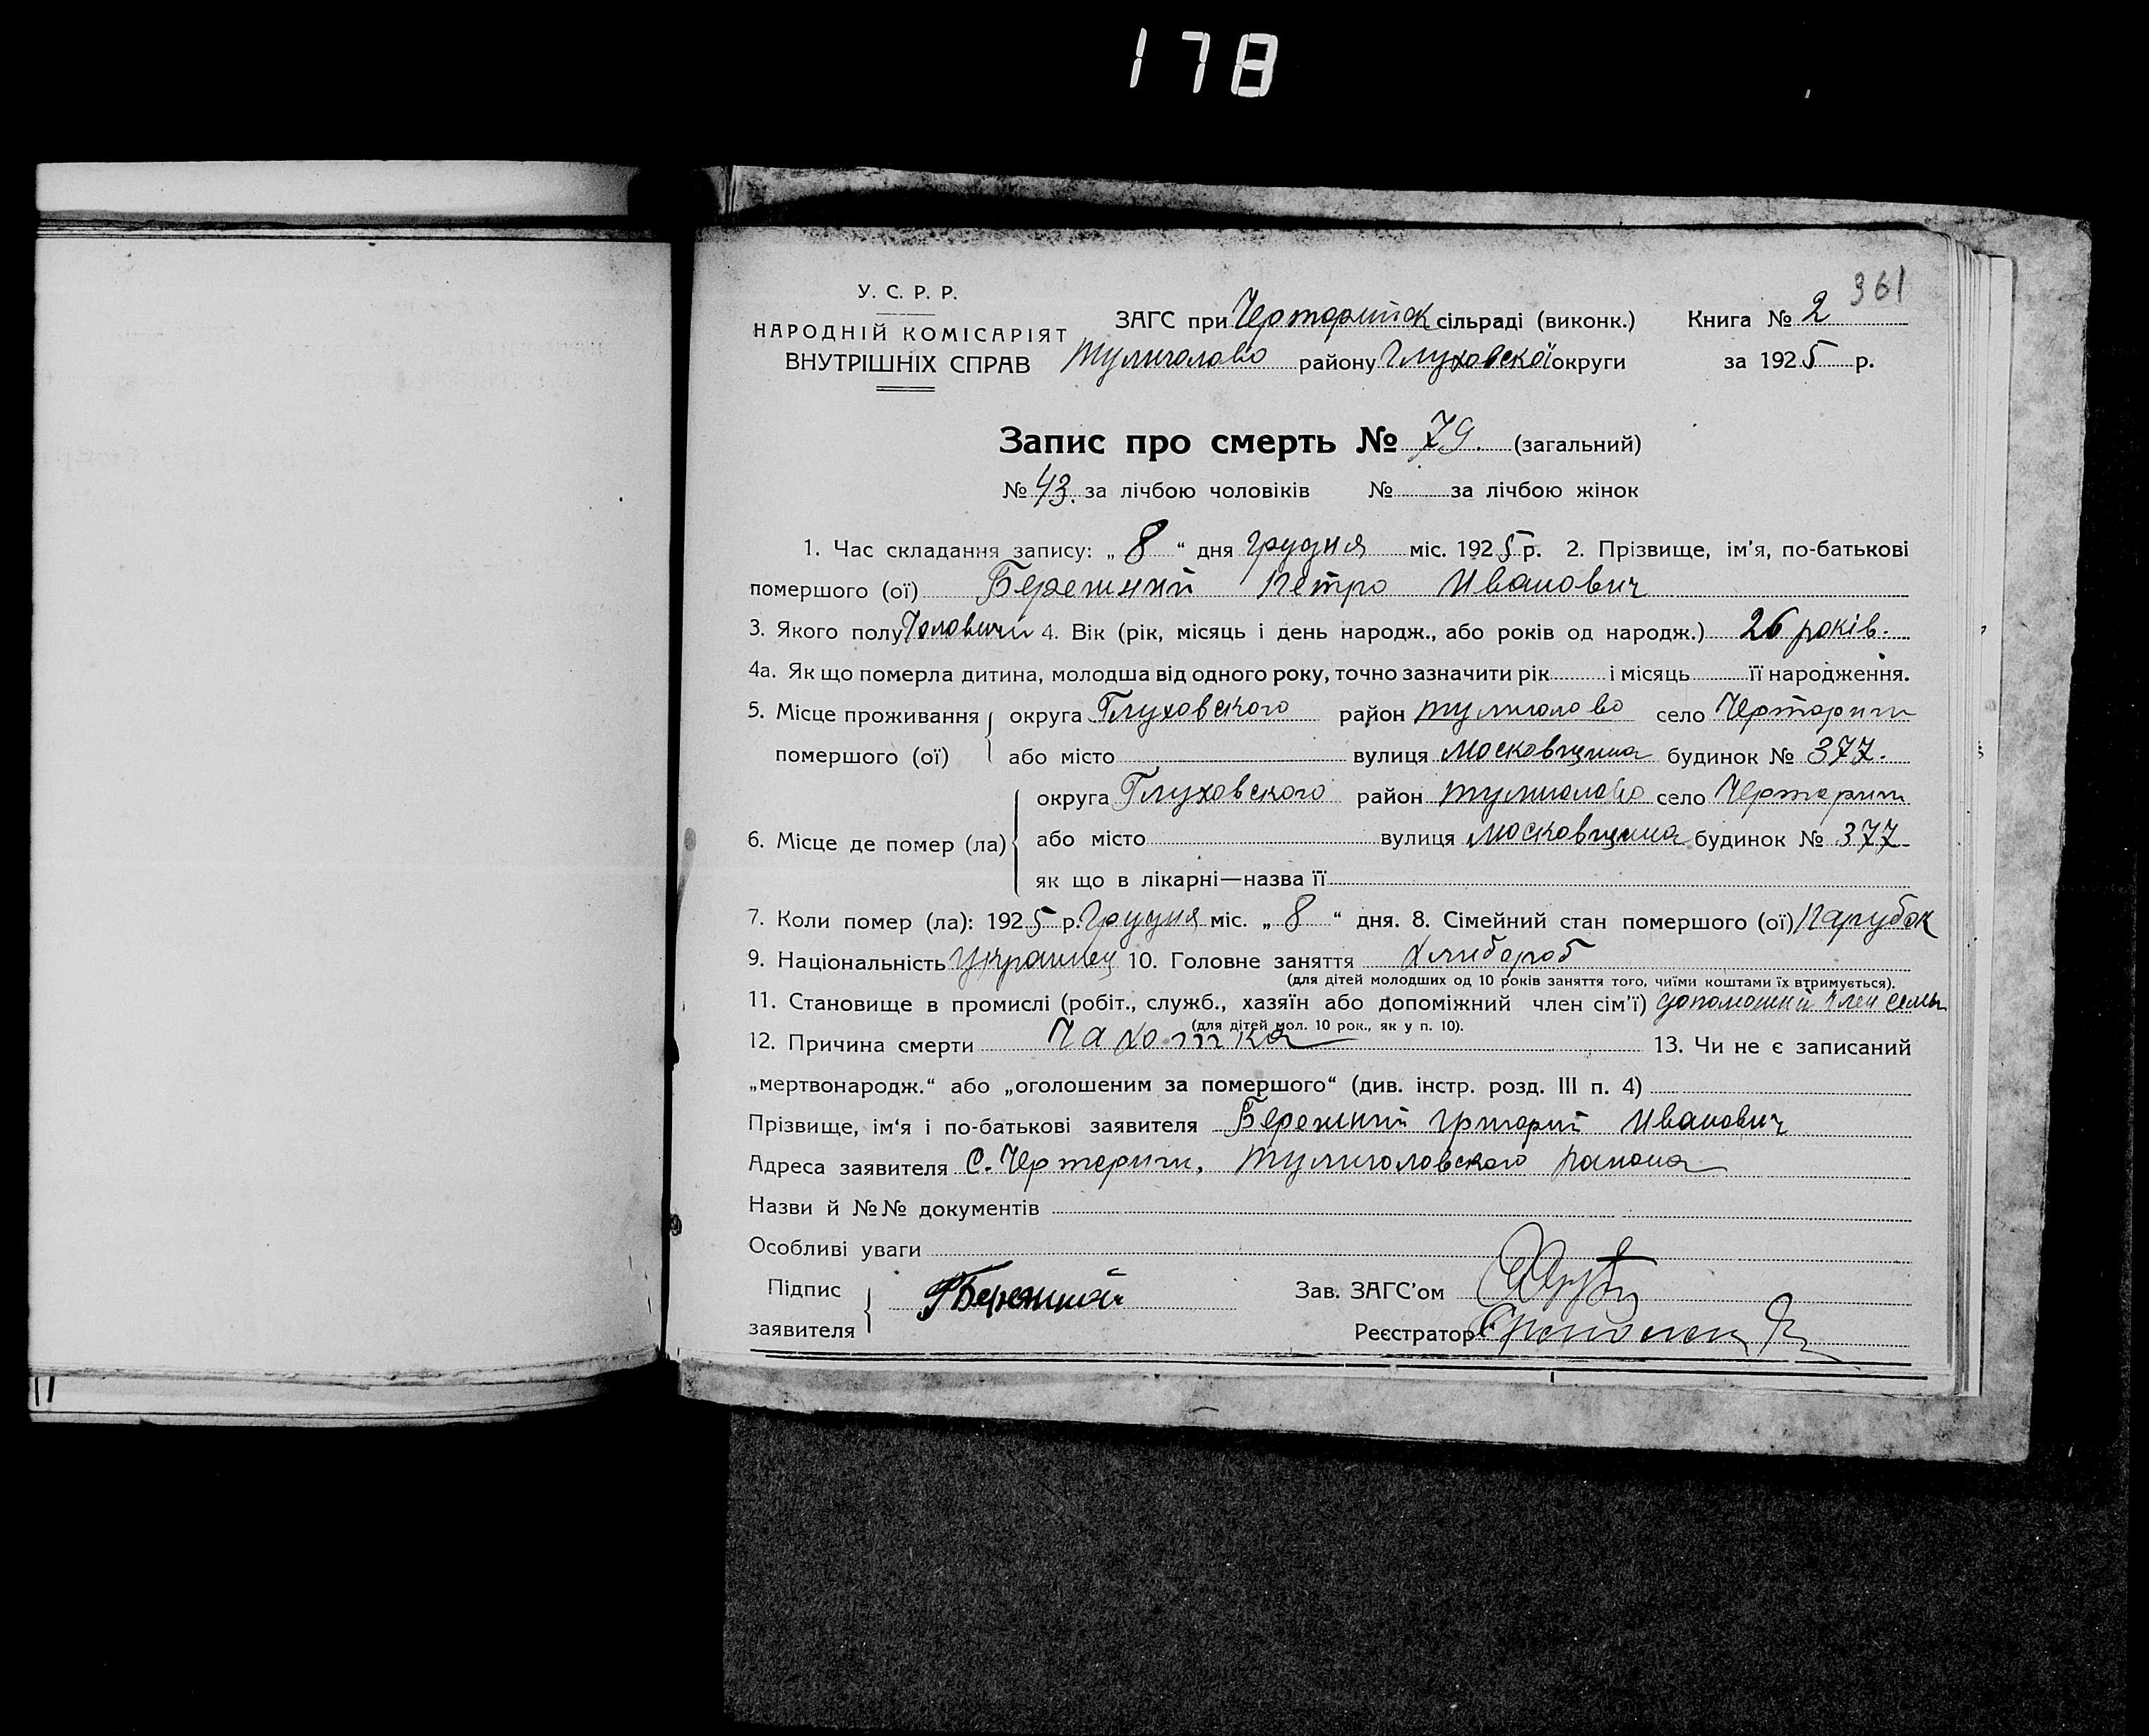 178
361
У. С. Р. Р.
НАРОДНІЙ КОМІСАРІЯТ
ВНУТРІШНІХ СПРАВ
ЗАГС при Чорторийск сільраді (виконк.)
Тулиголово району Глуховскої округи
Книга № 2
за 1925 р.
Запис про смерть № 79. (загальний)
№ 43. за лічбою чоловіків № за лічбою жінок
1. Час складання запису: „ 8 “ дня грудня міс. 1925 р. 2. Прізвище, ім’я, по-батькові
помершого (ої) Бережний Петро Иванович
3. Якого полу Чоловичи 4. Вік (рік, місяць і день народж., або років од народж.) 26 років.
4а. Як що померла дитина, молодша від одного року, точно зазначити рік і місяць її народження.
5. Місце проживання округа Глуховского район Тулиголово село Чорториги
помершого (ої) або місто вулиця Московщина будинок № 377.
округа Глуховского район Тулиголово село Чорториги
6. Місце де помер (ла) або місто вулиця Московщина будинок № 377
як що в лікарні—назва її
7. Коли помер (ла): 1925 р. Грудня міс. „ 8 “ дня. 8. Сімейний стан помершого (ої) Парубок
9. Національність Украинец 10. Головне заняття Хлибороб
(для дітей молодших од 10 років заняття того, чиїми коштами їх втримується).
11. Становище в промислі (робіт., служб., хазяїн або допоміжний член сім’ї) допоможний член семьи
(для дітей мол. 10 рок., як у п. 10).
12. Причина смерти Чахотка 13. Чи не є записаний
„мертвонародж.“ або „оголошеним за помершого“ (див. інстр. розд. III п. 4)
Прізвище, ім’я і по-батькові заявителя Бережний Григорий Иванович
Адреса заявителя С. Чорториги, Тулиголовского района
Назви й №№ документів
Особливі уваги
Підпис
заявителя
Г Бережной
Зав. ЗАГС’ом
Реєстратор